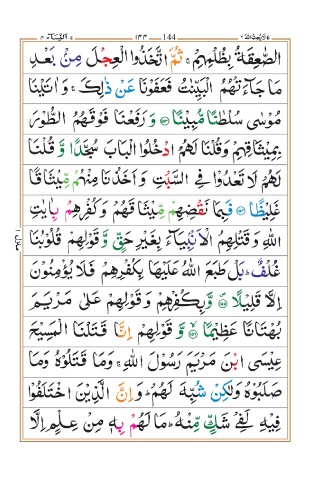 النسآء ٤ ١٤٤ 144 لا یحب اللہ ٦
الصّٰعِقَةُ بِظُلْمِهِمْ ۚ ثُمَّ اتَّخَذُوا الْعِجْلَ مِنْۢ بَعْدِ
مَا جَآءَتْهُمُ الْبَيِّنٰتُ فَعَفَوْنَا عَنْ ذٰلِكَ ۚ وَاٰتَيْنَا
مُوْسٰى سُلْطٰنًا مُّبِيْنًا ۝ وَرَفَعْنَا فَوْقَهُمُ الطُّوْرَ
بِمِيْثَاقِهِمْ وَقُلْنَا لَهُمُ ادْخُلُوا الْبَابَ سُجَّدًا وَّقُلْنَا
لَهُمْ لَا تَعْدُوْا فِى السَّبْتِ وَاَخَذْنَا مِنْهُمْ مِّيْثَاقًا
غَلِيْظًا ۝ فَبِمَا نَقْضِهِمْ مِّيْثَاقَهُمْ وَكُفْرِهِمْ بِاٰيٰتِ
اللّٰهِ وَقَتْلِهِمُ الْاَنْۢبِيَآءَ بِغَيْرِ حَقٍّ وَّقَوْلِهِمْ قُلُوْبُنَا
غُلْفٌ ؕ بَلْ طَبَعَ اللّٰهُ عَلَيْهَا بِكُفْرِهِمْ فَلَا يُؤْمِنُوْنَ
اِلَّا قَلِيْلًا ۝ وَّبِكُفْرِهِمْ وَقَوْلِهِمْ عَلٰى مَرْيَمَ
بُهْتَانًا عَظِيْمًا ۝ وَّقَوْلِهِمْ اِنَّا قَتَلْنَا الْمَسِيْحَ
عِيْسَى ابْنَ مَرْيَمَ رَسُوْلَ اللّٰهِ ۚ وَمَا قَتَلُوْهُ وَمَا
صَلَبُوْهُ وَلٰكِنْ شُبِّهَ لَهُمْ ؕ وَاِنَّ الَّذِيْنَ اخْتَلَفُوْا
فِيْهِ لَفِىْ شَكٍّ مِّنْهُ ؕ مَا لَهُمْ بِهٖ مِنْ عِلْمٍ اِلَّا